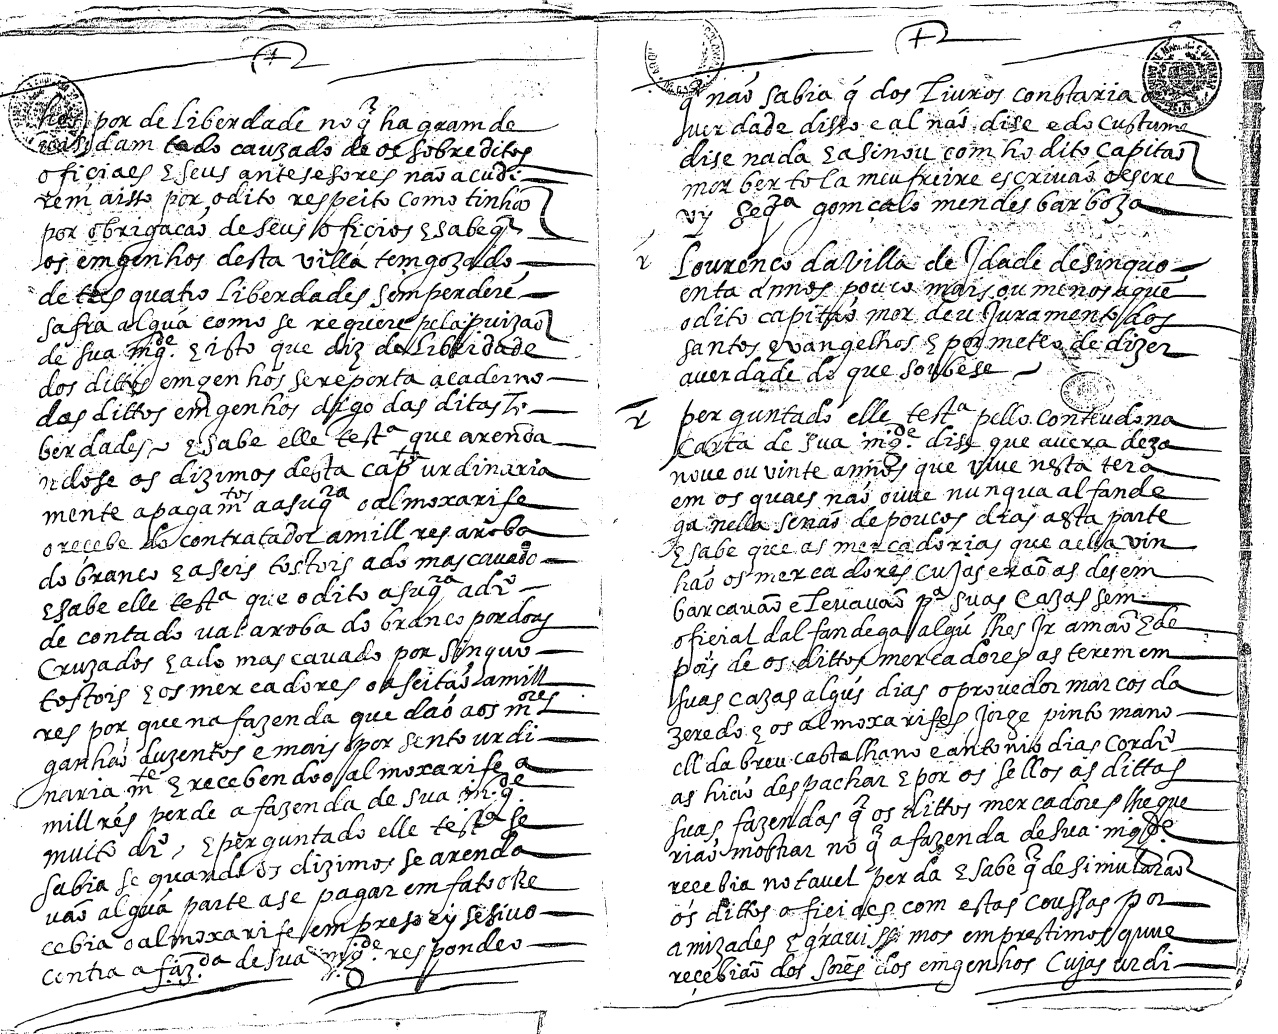 por de liberdade no q̃ ha gramde
dam tado cauzado de os sobreditos
oficiaes e seus antesesores não acudi
rem aisto por odito respeito como tinhão
por obrigação de seus oficios e sabe q̃
os emgenhos desta villa tem gozado
de tres quatro liberdades sem perderē
safra algũa como se requere pela puizaō
de sua mg.de e isto que diz de liberdade
dos dittos emgenhos se reporta a caderno
dos dittos emgenhos digo das ditas li
berdades e sabe elle test.a que arenda
ndose os dizimos desta cap.ta urdinaria
mente a pagam.tos a asuq.ra o almoxarife
o recebe do contratador a mill res aroba
do branco e a seis tostois a do mascauado
e sabe elle test.a que o dito asuq.ra a dr.o
de contado val aroba do branco por dous
cruzados e a do mascauado por sinquo
tostois e os mercadores o aseitão a mill
res por que na fazenda que daõ aos m.ores
ganhão duzentos e mais por sento urdi
naria m.te e recebendo o almoxarife a
mill rés perde a fazenda de sua mg.de
muito dr.o e perguntado elle test.a se
sabia se quando os dizimos se arenda
uão algũa parte a se pagar em fato o Re
cebia o almoxarife em preso exsesiuo
contra a faz.da de sua mg.de respondeo
q̃ não sabia q̃ dos liuros constaria a
uerdade disso e al não dise e do custume
dise nada e asinou com ho dito capitão
mor bertolameu freire escriuão o escre
vy Seq.ra gomçalo mendes barboza
Lourenço da Villa de Idade de sinquo
enta annos pouco mais ou menos a quē
o dito capitão mor deu Juramento dos
santos evangelhos e prometeo de dizer
a uerdade do que soubese
r perguntado elle test.a pello conteudo na
carta de sua mg.de disse que auera deza
noue ou vinte annos que vive nesta tera
em os quaes não ouue nunqua alfande
ga nella senão de poucos dias a esta parte
e sabe que as mercadorias que a ella vin
hão os mercadores cujas erão as desem
barcauão e leuauão p.a suas cazas sem
oficial dalfandega algũ lhes Ir a mão e de
pois de os dittos mercadores as terem em
suas cazas algũs dias o prouedor marcos da
zeredo e os almoxarifes Jorge pinto mano
ell dabreu castalhano e antonio dias cordr.o
as hião despachar e por os sellos as dittas
suas fazendas q̃ os dittos mercadores lhe que
rião mostrar no q̃ a fazenda de sua mg.de
recebia notauel perda e sabe q̃ desimulauão
os dittos oficiaes com estas coussas por
amizades e grauissimos emprestimos quue
recebião dos sores dos emgenhos cujas urdi